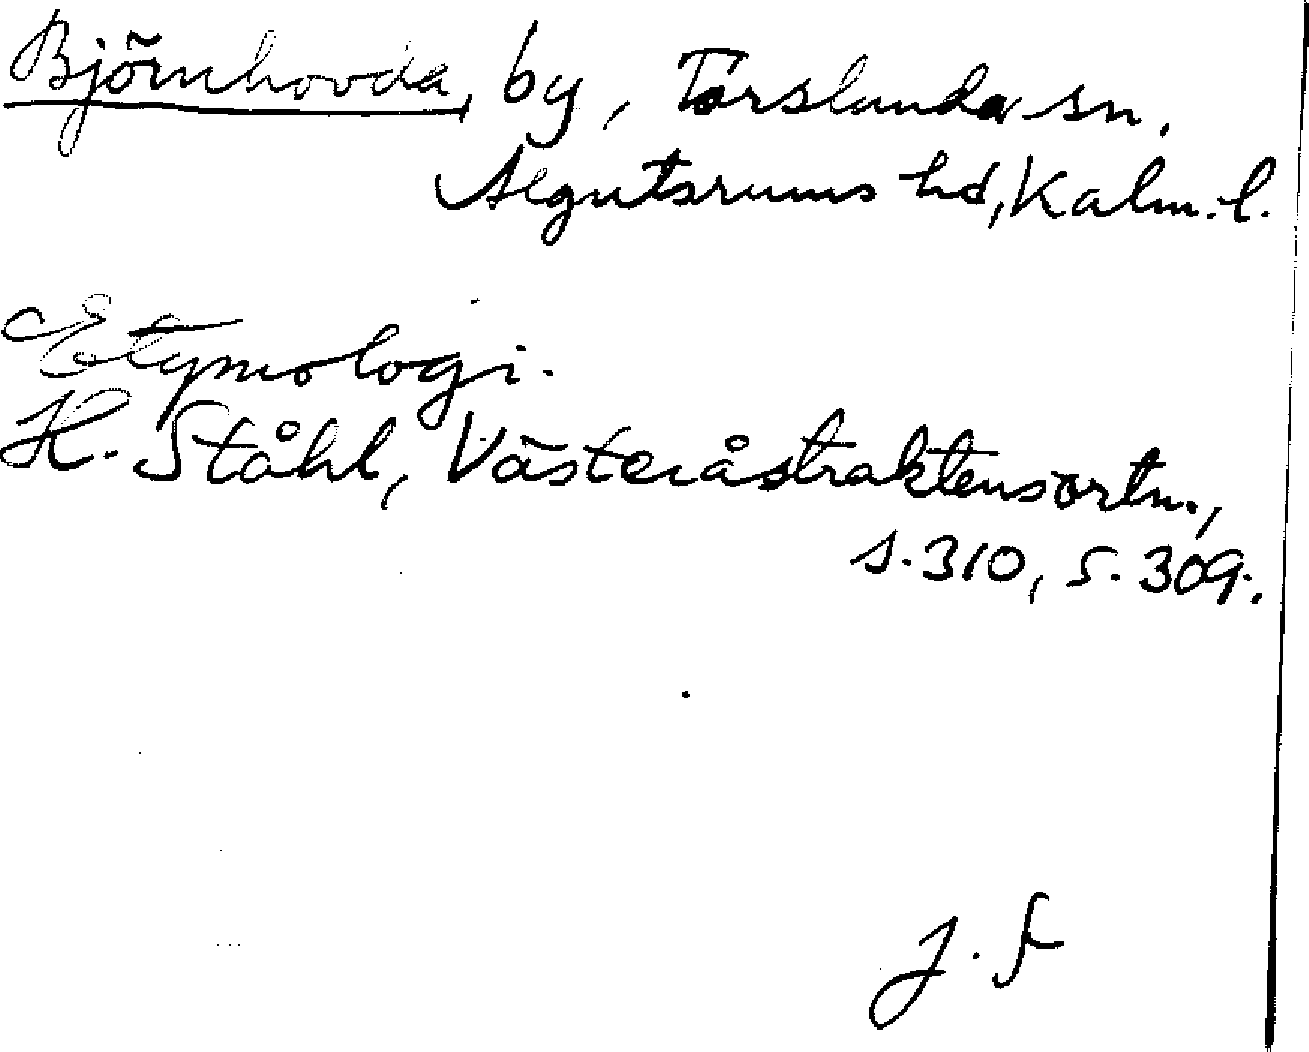 Björnhovda, by, Torslunda sn.
Algutsrums hd, Kalm. l.
Etymologi.
H. Ståhl, Västeråstraktens ortn.,
s. 310, s. 309.
J. F